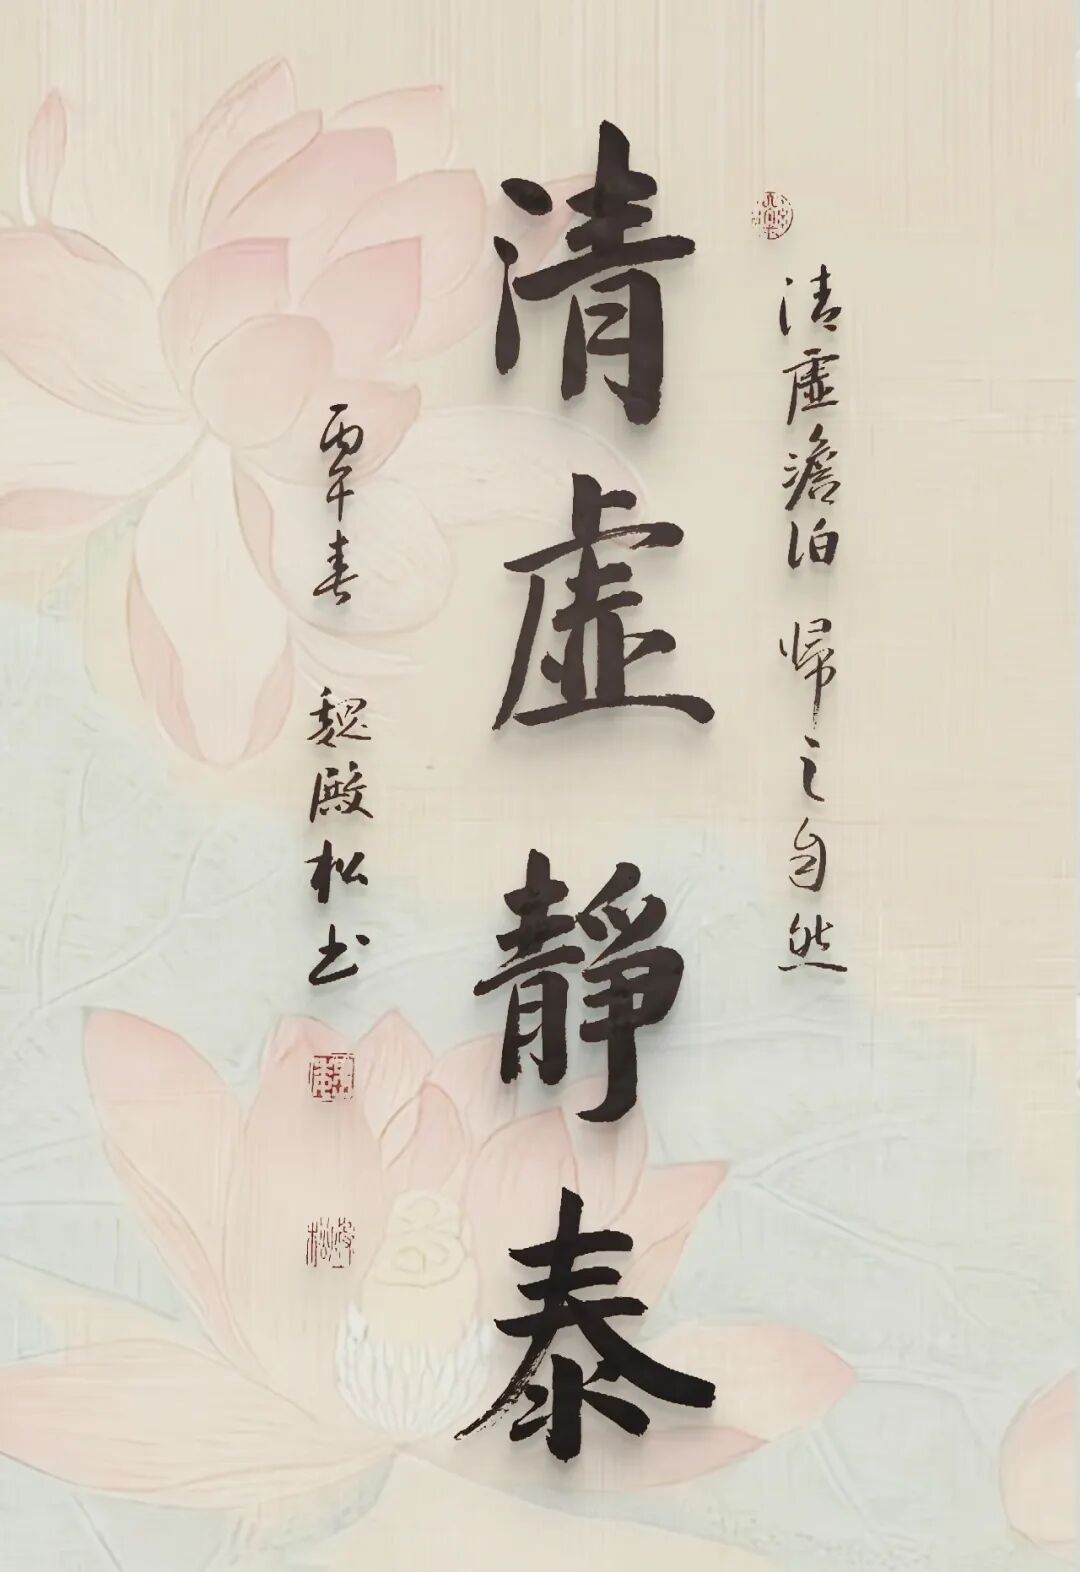 清虚澹泊 归之自然
清虚靜泰
丙午春 魏殿松书